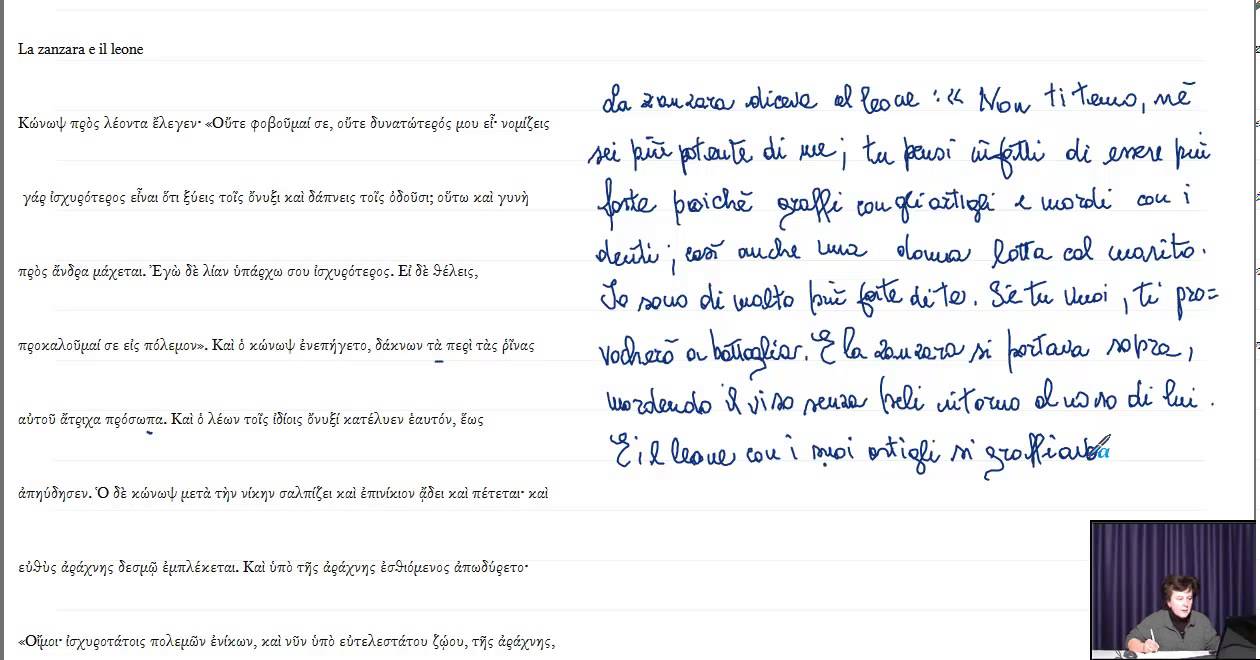 La zanzara e il leone
Κώνωψ πρὸς λέοντα ἔλεγεν· «Οὔτε φοβοῦμαί σε, οὔτε δυνατώτερός μου εἶ· νομίζεις
γάρ ἰσχυρότερος εἶναι ὅτι ξύεις τοῖς ὄνυξι καὶ δάπνεις τοῖς ὀδοῦσι; οὕτω καὶ γυνὴ
πρὸς ἄνδρα μάχεται. Ἐγὼ δὲ λίαν ὑπάρχω σου ἰσχυρότερος. Εἰ δὲ θέλεις,
προκαλοῦμαί σε εἰς πόλεμον». Καὶ ὁ κώνωψ ἐνεπήγετο, δάκνων τὰ περὶ τὰς ῥῖνας
αὐτοῦ ἄτριχα πρόσωπα. Καὶ ὁ λέων τοῖς ἰδίοις ὄνυξί κατέλυεν ἑαυτόν, ἕως
ἀπηύδησεν. Ὁ δὲ κώνωψ μετὰ τὴν νίκην σαλπίζει καὶ ἐπινίκιον ᾄδει καὶ πέτεται· καὶ
εὐθὺς ἀράχνης δεσμῷ ἐμπλέκεται. Καὶ ὑπὸ τῆς ἀράχνης ἐσθιόμενος ἀπωδύρετο·
«Οἴμοι· ἰσχυροτάτοις πολεμῶν ἐνίκων, καὶ νῦν ὑπὸ εὐτελεστάτου ζῴου, τῆς ἀράχνης,
La zanzara diceva al leone : « Non ti temo, né
sei più potente di me ; tu pensi infatti di essere più
forte poiché graffi con gli artigli e mordi con i
denti ; così anche una donna lotta col marito.
Io sono di molto più forte di te. Se tu vuoi, ti pro=
vocherò a battaglia». E la zanzara si portava sopra,
mordendo il viso senza peli intorno al naso di lui.
E il leone con i suoi artigli si graffiava